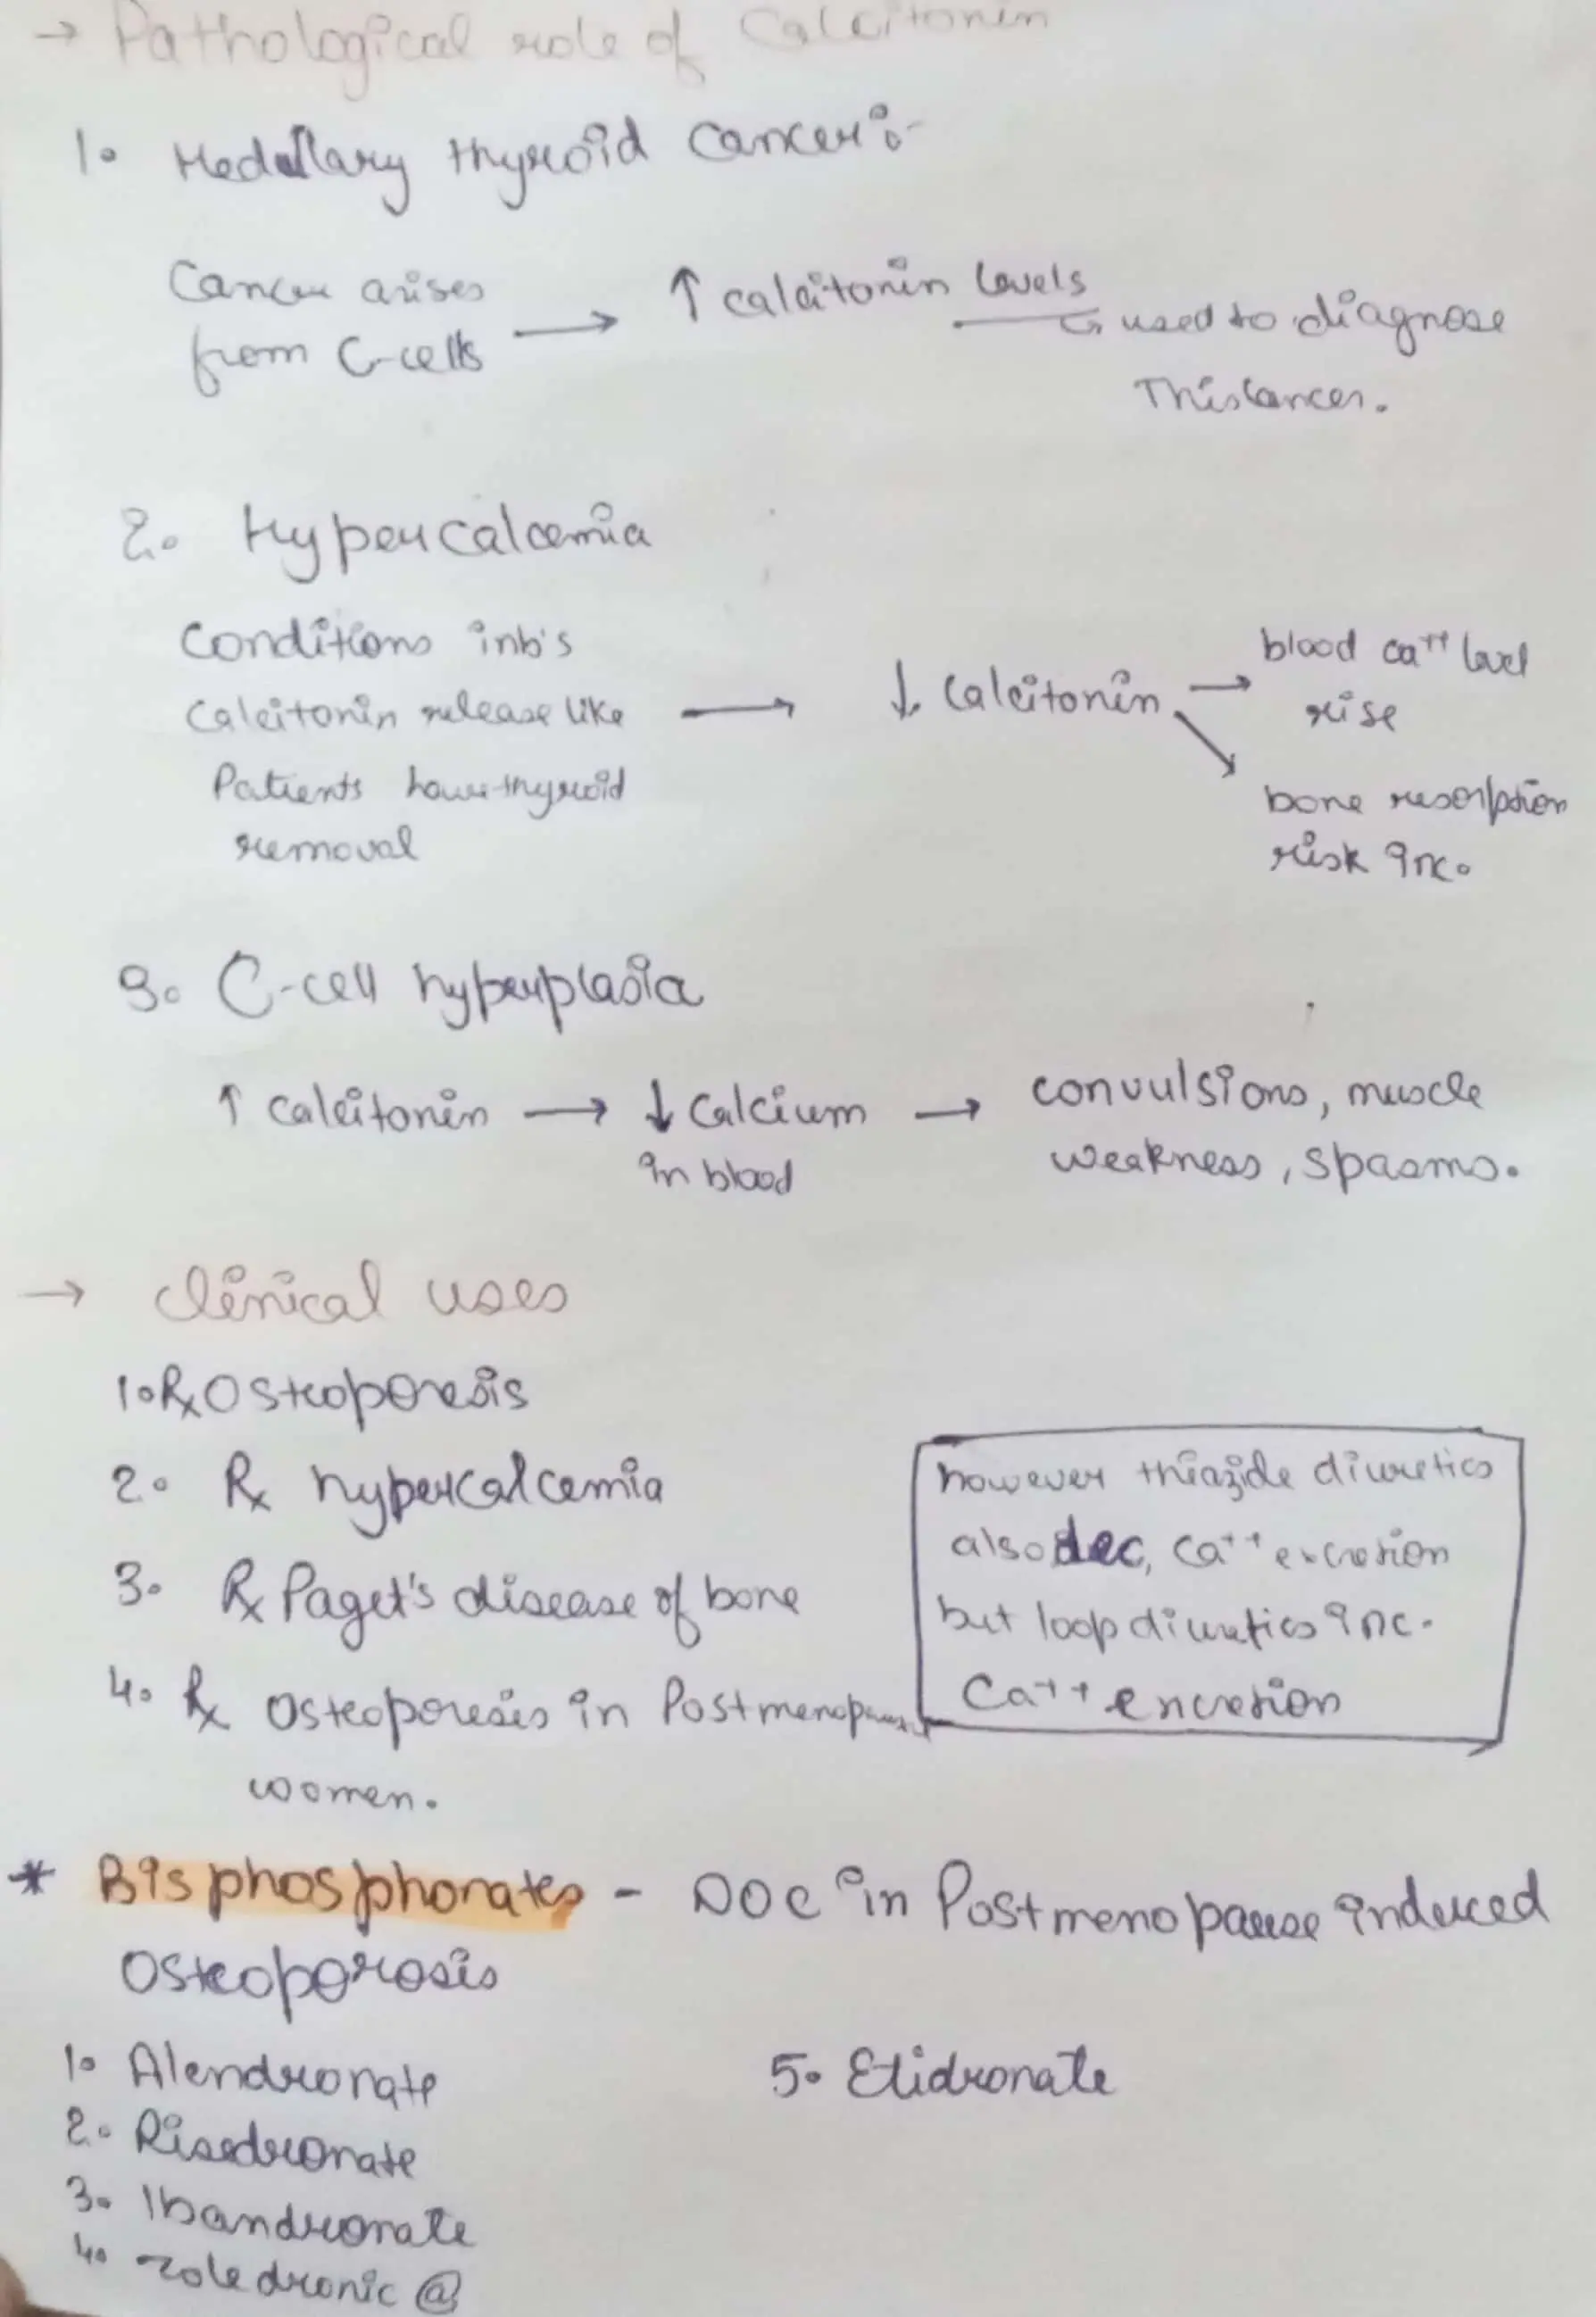 → Pathological role of Calcitonin
1. Medullary thyroid cancer:-
Cancer arises
from C-cells → ↑ calcitonin levels
↳ used to diagnose
This cancer.
2. Hypercalcemia
Conditions inb's
Calcitonin release like → ↓ Calcitonin → blood ca++ level
rise
Patients have thyroid
removal
bone resorption
risk inc.
3. C-cell hyperplasia
↑ Calcitonin → ↓ Calcium → convulsions, muscle
in blood weakness, spasms.
→ Clinical uses
1. Rx Osteoporesis
2. Rx hypercalcemia
3. Rx Paget's disease of bone
4. Rx Osteoporesis in Postmenopausal
women.
however thiazide diuretics
also dec. Ca++ excretion
but loop diuretics inc.
Ca++ excretion
* Bisphosphonates - DOC in Postmenopause induced
Osteoporosis
1. Alendronate
2. Risedronate
3. Ibandronate
4. Zoledronic @
5. Etidronate